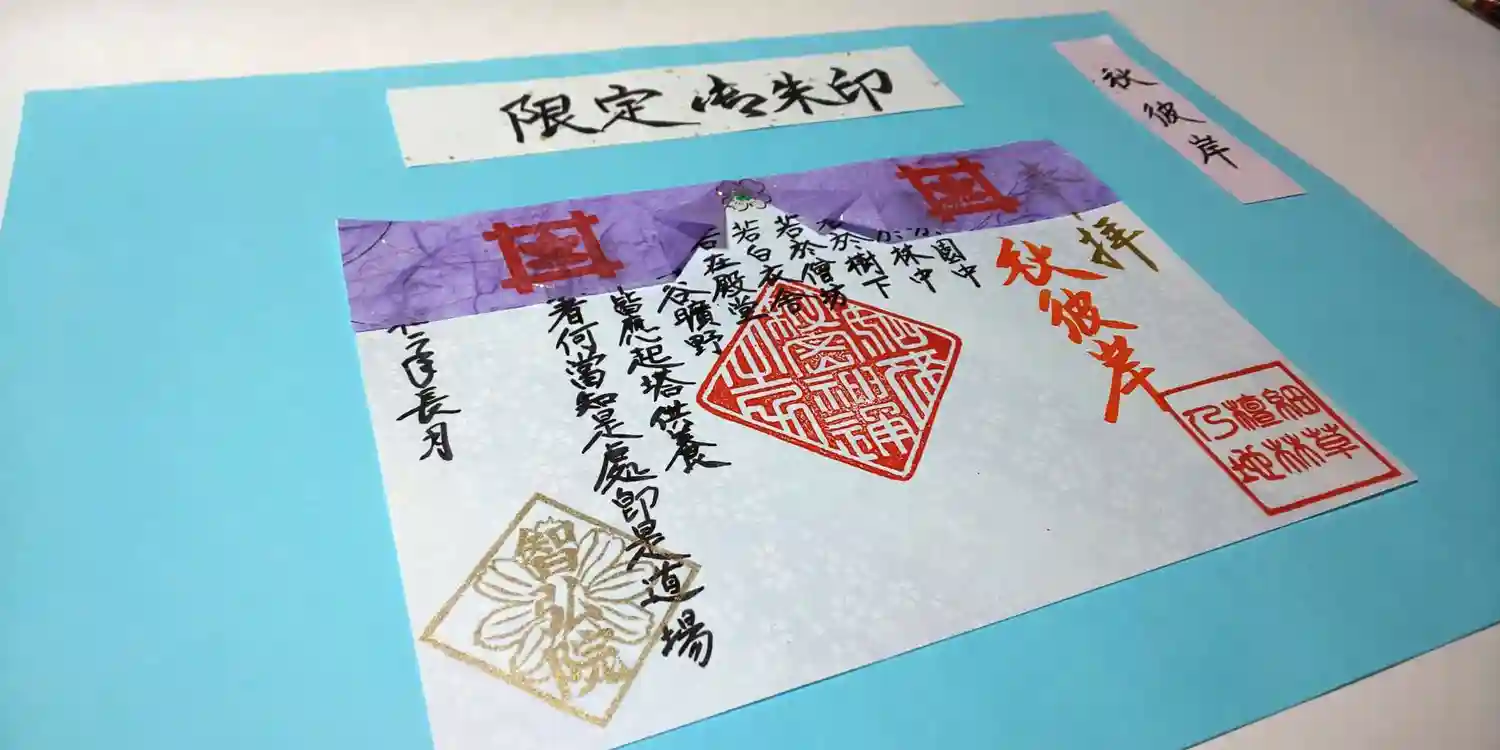 限定 御朱印
秋彼岸
拝
秋彼岸
細草
檀林
乃地
園中
於林中
若於樹下
若於僧坊
若白衣舎
若在殿堂
谷曠野
皆應起塔供養
者何當知是處即是道場
二年長月
智弘院